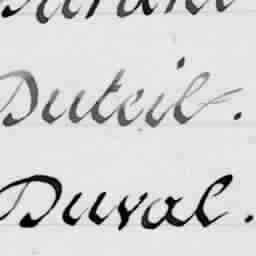 Duteil.
Duval.